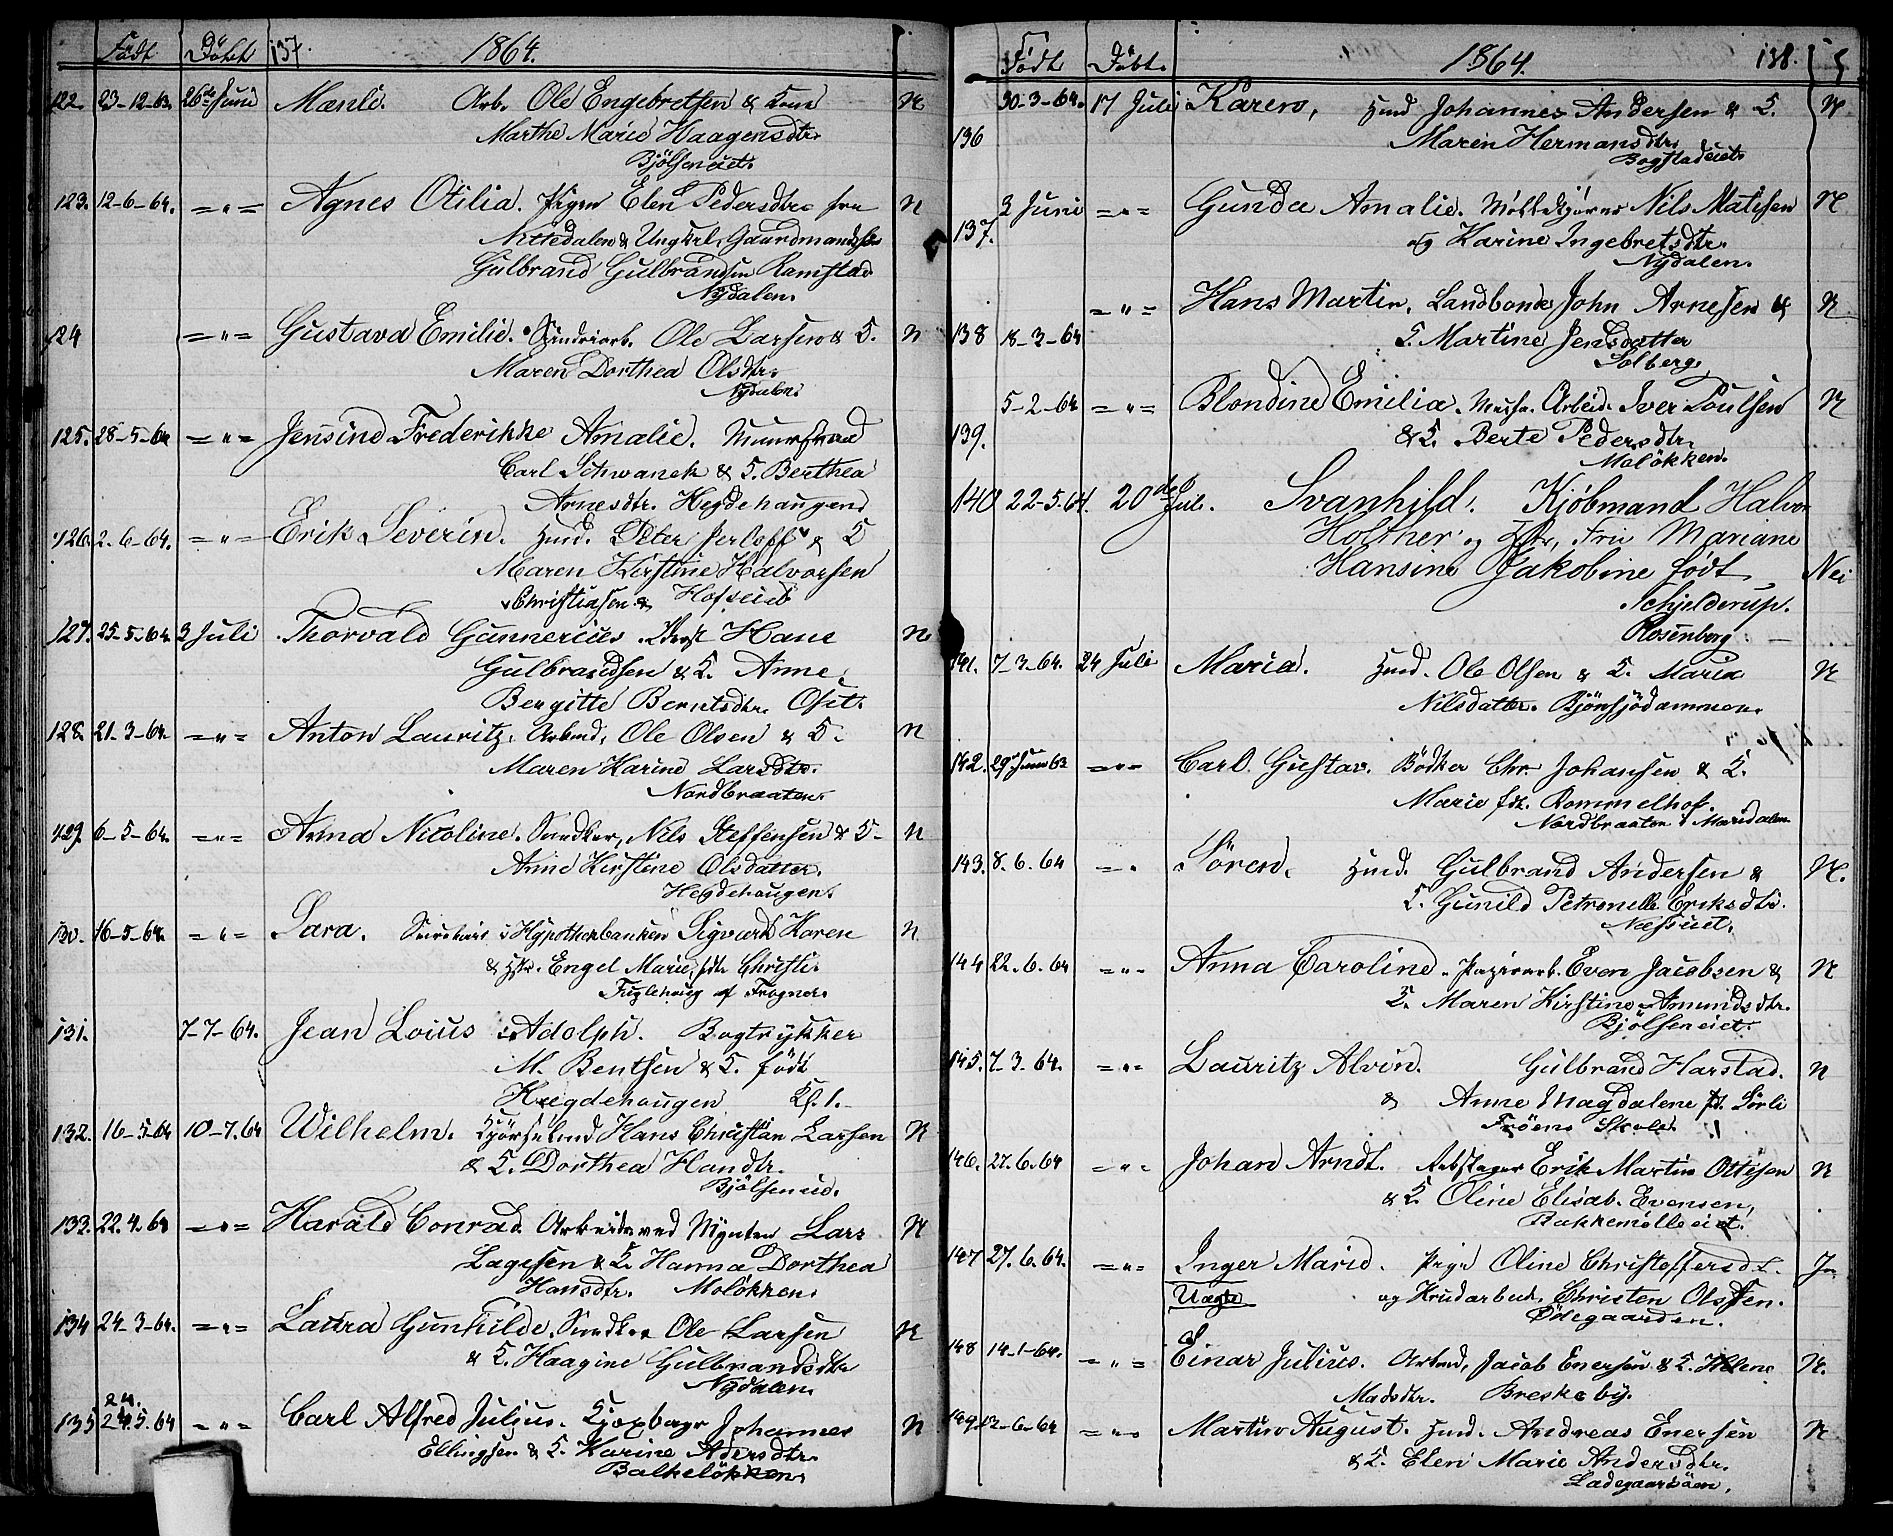 Født Döbt 137. 1864.
122. 23-12-63. 26de Juni Mænli. Arb. Ole Engebretsen & Kone N
Marthe Marie Haagensdtr.
Bjölseneiet.
123. 12-6-64. =„= Agnes Otilia. Pigen Elen Pedersdtr. fra N
Nittedalen & Ungkrl. Gaardmands
Gulbrand Gulbrandsen Ramstad
Nydalen.
124 =„= Gustava Emilie. Ole Larsen & K. N
Maren Dorthea Olsdtr.
Nydalen.
125. 28-5-64 =„= Jensine Frederikke Amalie. Muursvend
Carl Schwanek & K. Berthea
Arnesdtr. Hegdehaugen
126. 2-6-64. =„= Erik Severin. Husd. Peter & K
Maren Kirstine Halvorsen
Christiasen
127. 25-5-64. 3 Juli Thorvald Gunnerius. Hans N
Gulbrandsen & K. Anne
Bergitte Berntsdtr. Oset.
128. 21-3-64. =„= Anton Lauritz. Arbmd. Ole Olsen & K. N
Maren Karine Larsdtr.
Nordbraaten.
129. 6-5-64. =„= Anna Nicoline. Snedker, Nils Steffensen & K. N
Anne Kirstine Olsdatter.
Hegdehaugen.
130. 16-5-64. =„= Sara. i Hypothekbanken Sigvard Koren N
& Hstr. Engel Marie, fdt. Christi.
Fuglehaug af Frogner.
131. 7-7-64. Jean Loius Adolph. Bogtrykker
M. Bentsen & K. född
Hegdehaugen
132. 16-5-64 10-7-64 Wilhelm. Kjörselsmd Hans Christian Larsen N
& K. Dorthea Handtr.
133. 22.4.64 =„= Harald Conrad. Arbeider ved Mynten Lars N
Lagesen & K. Hanna Dorthea
Hansdtr. Moløkken.
134 24-3-64. =„= Laura Gunhilde. Snedker Ole Larsen N
& K. Haagine Gulbrandsdtr
Nydalen.
135 24.5.64 =„= Carl Alfred Julius. Johannes N
Ellingsen & K. Karine Adersdtr.
Balkeløkken.
Født Döbt. 1864. 138.
136 30-3-64. 17 Juli Karen, Husd Johannes Andersen & K. N.
Maren Hermansdtr.
Bogstadeiet.
137. 3 Juni =„= Gunda Amalie. Nils Matisen N
og Karine Ingebretsdtr.
Nydalen.
138 18-3-64 =„= Hans Martin. Landbonde John Arnesen & N
K. Martine Jensdatter
Solberg.
139. 5-2-64 =„= Blondine Emilia. Arbeid. Iver Poulsen N
& K. Berte Pedersdtr.
Moløkken.
140 22-5.64. 20de Jul. Svanhild. Kjöbmand Halvor
Holtner og Hstr, Fru Mariane
Hansine Jakobine født Nei
Schjelderup.
Rosenborg.
141. 7-3-64. 24 Juli Maria. Husd. Ole Olsen & K. Maria N
Nilsdatter. Bjönsjödammen.
142. 29 Juni 63 =„= Carl Gustav. Bödker Chr. Johansen & K.
Marie fdt. Rommelhof.
Nordbraaten i Maridalen
143. 8.6.64 =„ Sören. Husd. Gulbrand Andersen & N.
K. Gunild Petronelle Eriksdtr.
Næsseiet.
144 22.6.64 =„= Anna Caroline. Papirarb. Even Jacobsen & N
K. Maren Kirstine Amundsdtr.
Bjölseneiet.
145. 7-3-64. =„= Lauritz Alvin. Gulbrand Harstad. N
& Anne Magdalene fdt. Sörli
Fröens Skole.
146. 27.6.64 =„= Johan Arndt. Erik Martin Ottesen N
& K. Oline Elisab. Evensen,
Bakkemölleeiet.
147 27.6.64. =„= Inger Marie. Pige Oline Christoffersdt. Ja
Uægte og Krudarbeid. Christen Olssen.
Ødegaarden.
148 14-1-64. =„= Einar Julius. Arbmd, Jacob Enersen & K. Helene N.
Madsdtr. Breskeby.
149. 12-6-64 =„= Martin August. Husd. Andreas Enersen N
& K. Elen Marie Andersdtr.
Ladegaardsöen.